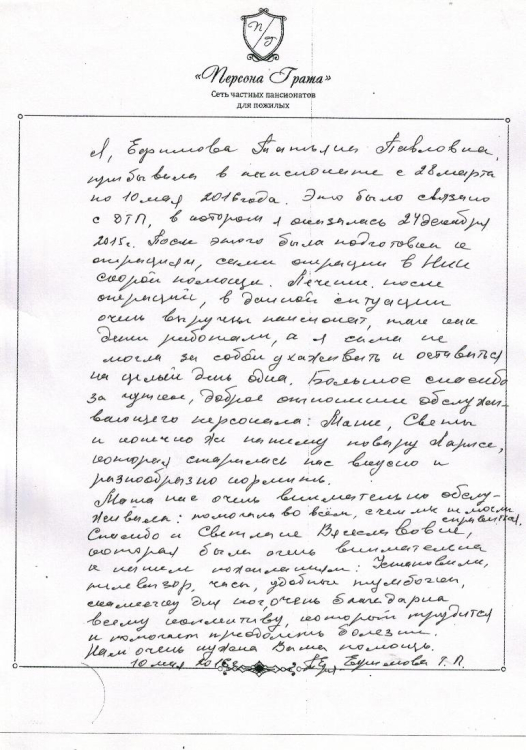 П Г
«Персона Гража»
Сеть частных пансионатов
для пожилых
Я, Ефимова Татьяна Павловна,
прибывала в пансионате с 28 марта
по 10 мая 2016 года. Это было связано
с ДТП, в котором я оказалась 24 декабря
2015г. После этого была подготовка к
операциям, сами операции в НИИ
скорой помощи. Лечение после
операций, в данной ситуации
очень выручил пансионат, так как
дети работали, а я сама не
могла за собой ухаживать и оставаться
на целый день одна. Большое спасибо
за чуткое, доброе отношение обслужи-
вающего персонала: Маше, Светы
и конечно же нашему повару Ларисе,
которая старалась нас вкусно и
разнообразно кормить.
Маша нас очень внимательно обслу-
живала: помогала во всём, с чем мы не могли
справиться.
Спасибо и Светлане Вячеславовне,
которая была очень внимательна
к нашим пожеланиям: Установили,
телевизор, часы, удобные тумбочки,
скамеечку для ног, очень благодарна
всему коллективу, который трудится
и помогает преодолеть болезни.
Нам очень нужна Ваша помощь.
10 мая 2016г. Ефимова Т. П.